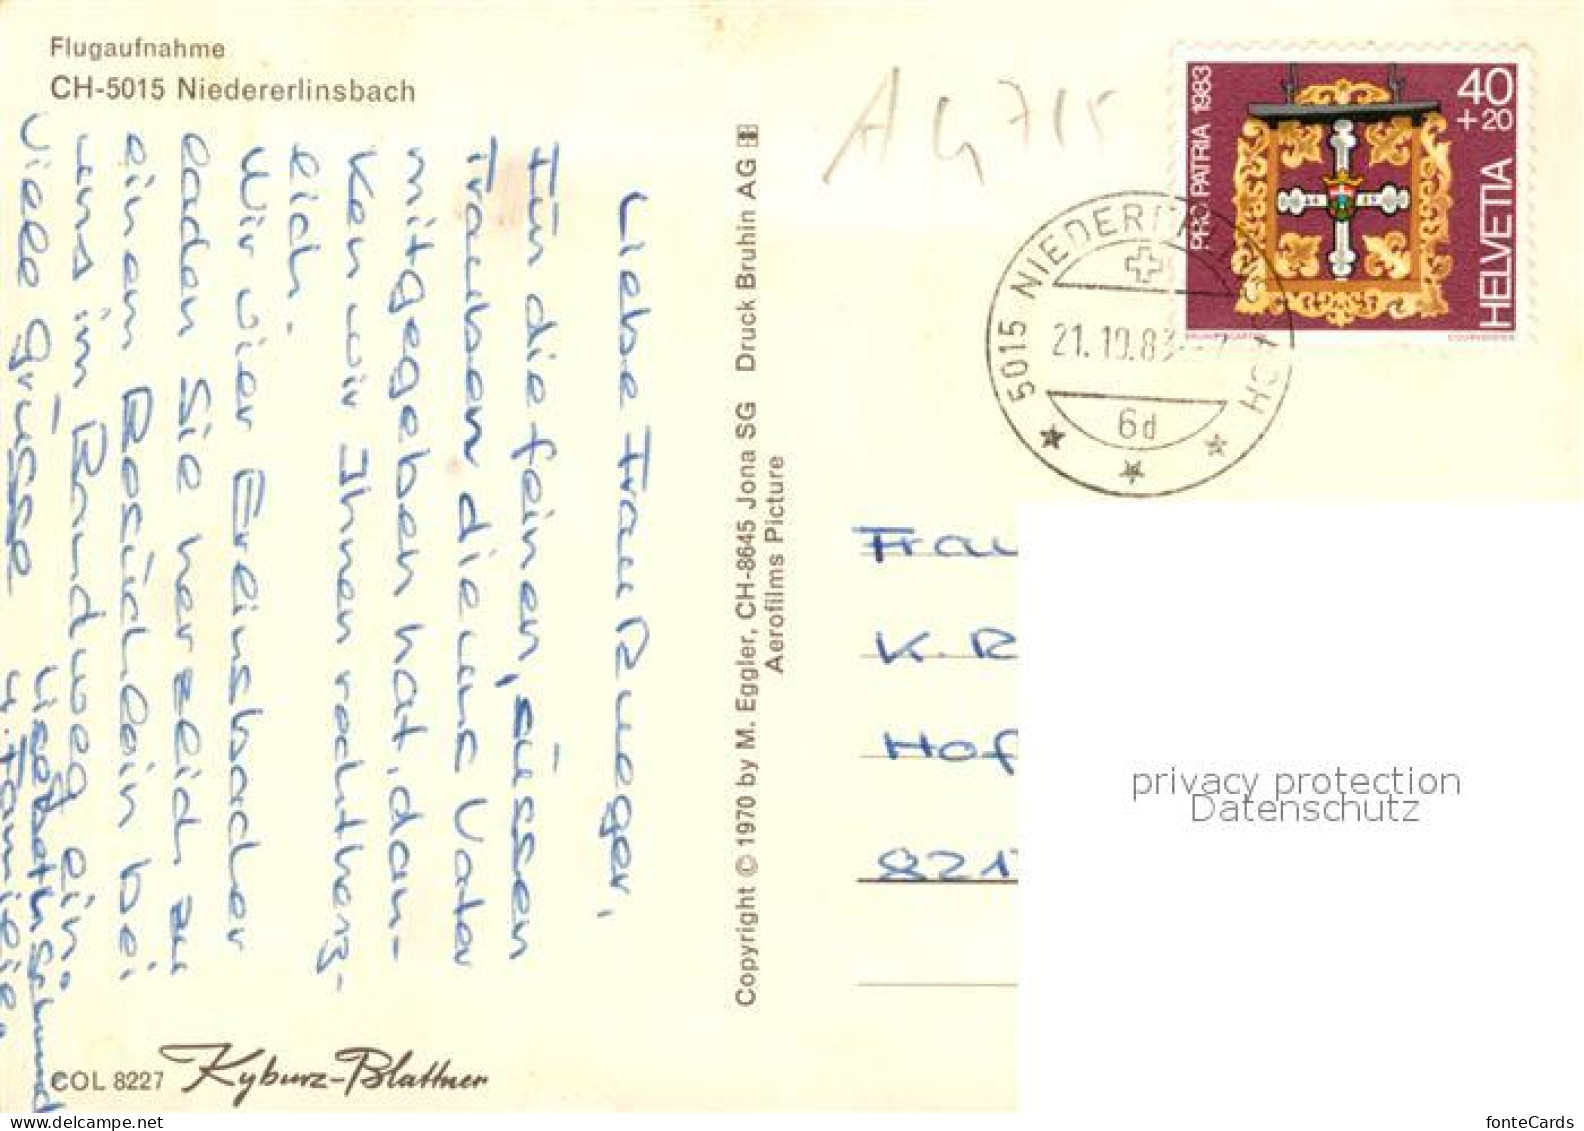 Flugaufnahme
CH-5015 Niedererlinsbach
Liebe Frau Rueger,
Für die feinen, süssen
Trauben die uns Vater
mitgegeben hat, dan-
ken wir Ihnen recht herz-
lich.
Wir vier Erlinsbacher
laden Sie herzlich zu
einem Besüchlein bei
uns im Rundweg ein.
Viele Grüsse
Lisbeth Schmid
u. Familie.
COL 8227 Kyburz-Blattner
Copyright © 1970 by M. Eggler, CH-8645 Jona SG Druck Bruhin AG
Aerofilms Picture
AG 715
PRO PATRIA 1983
40
+20
HELVETIA
5015 NIEDERER
21.10.83
6d
Frau
K. R
Hof
821
privacy protection
Datenschutz
fonteCards